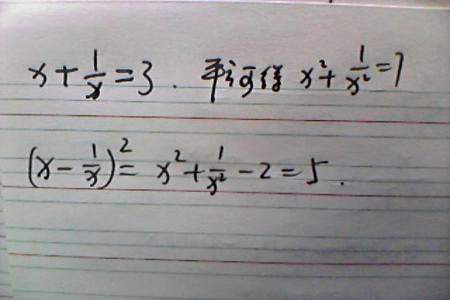 x + 1/x = 3. 平方可得 x² + 1/x² = 7
(x - 1/x)² = x² + 1/x² - 2 = 5.